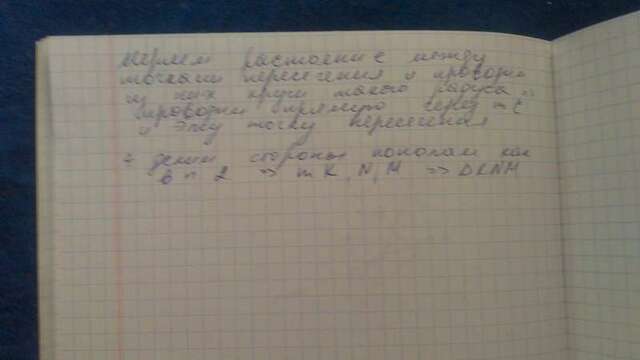 меряем растояние между
точками пересечения и проводим
из них круги такого радиуса =>
проводим прямую через т С
и эту точку пересечения
4 делим стороны пополам как
в п 2 => т K, N, M => ΔKNM